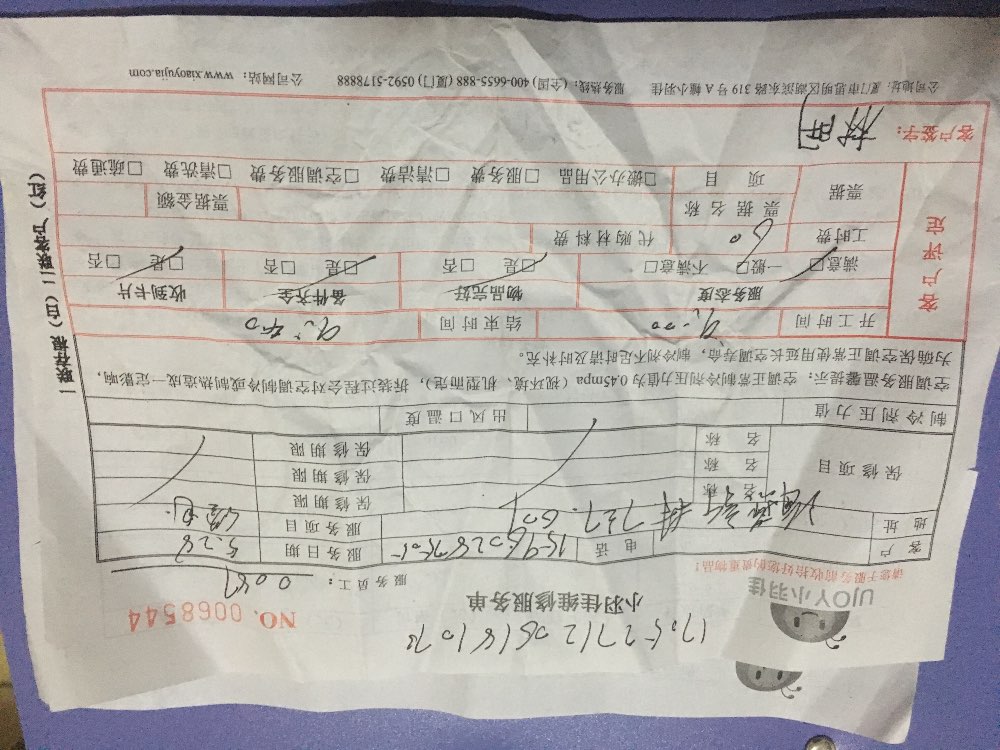 17052771206181070
小羽佳维修服务单
UJOY小羽佳
请您于服务前收拾好您的贵重物品！
NO. 0068544
服务员工：
客户 电话 服务日期 5.28
地址 服务项目
保修项目 名称 保修期限
名称 保修期限
名称 保修期限
制冷剂压力值 出风口温度
空调服务温馨提示：空调正常制冷剂压力值为0.45mpa（按环境、机型而定），拆装过程会对空调制冷或制热造成一定影响，
为确保空调正常使用延长空调寿命，制冷剂不足时请及时补充。
客户评定
开工时间 9:00 结束时间
服务态度 物品完好 备件齐全 收到卡片
满意□ 一般□ 不满意□ □是 □否 □是 □否 □是 □否
工时费 60 代购材料费
票据 票据名称 票据金额
项目 □搬办公用品 □服务费 □清洁费 □空调服务费 □清洗费 □疏通费
客户签字：
公司地址：厦门市思明区湖滨东路 319 号 A 幢小羽佳 服务热线：(全国) 400-6655-888 (厦门) 0592-5178888 公司网站：www.xiaoyujia.com
一联存根（白）二联客户（红）